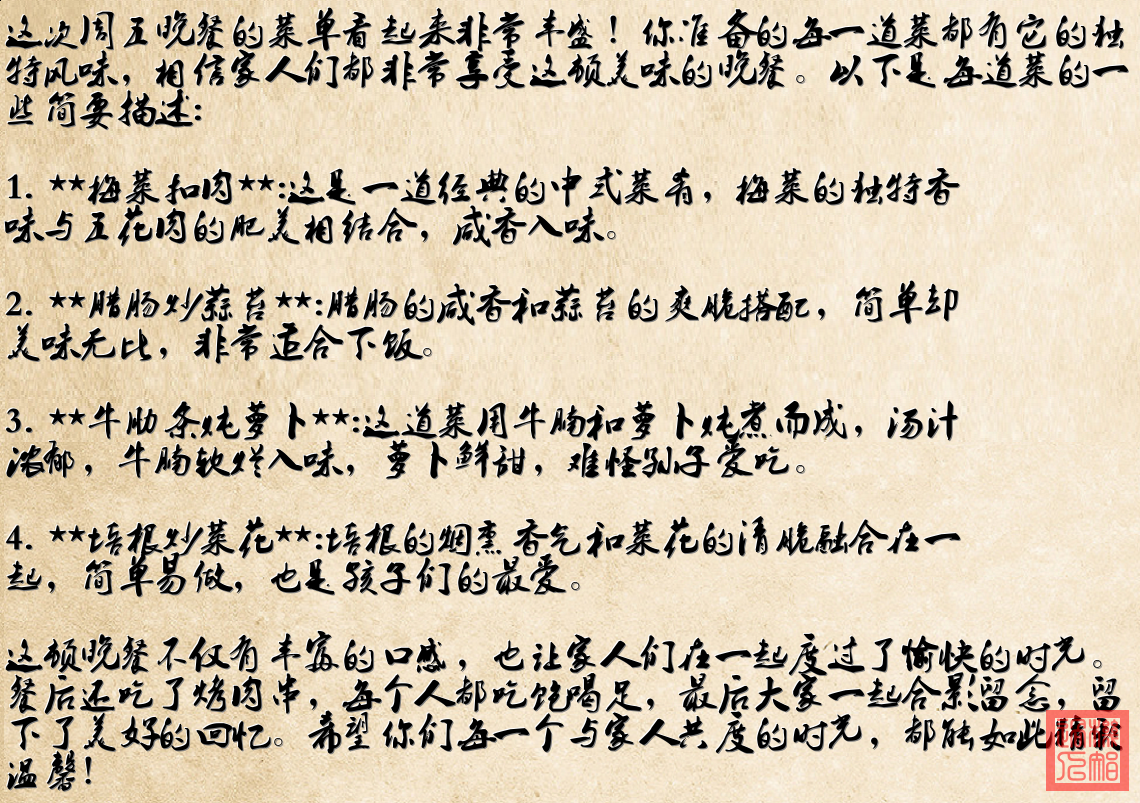 这次周五晚餐的菜单看起来非常丰盛！你准备的每一道菜都有它的独
特风味，相信家人们都非常享受这顿美味的晚餐。以下是每道菜的一
些简要描述：
1. **梅菜扣肉**：这是一道经典的中式菜肴，梅菜的独特香
味与五花肉的肥美相结合，咸香入味。
2. **腊肠炒蒜苔**：腊肠的咸香和蒜苔的爽脆搭配，简单却
美味无比，非常适合下饭。
3. **牛肋条炖萝卜**：这道菜用牛腩和萝卜炖煮而成，汤汁
浓郁，牛腩软烂入味，萝卜鲜甜，难怪孙子爱吃。
4. **培根炒菜花**：培根的烟熏香气和菜花的清脆融合在一
起，简单易做，也是孩子们的最爱。
这顿晚餐不仅有丰富的口感，也让家人们在一起度过了愉快的时光。
餐后还吃了烤肉串，每个人都吃饱喝足，最后大家一起合影留念，留
下了美好的回忆。希望你们每一个与家人共度的时光，都能如此精彩
温馨！